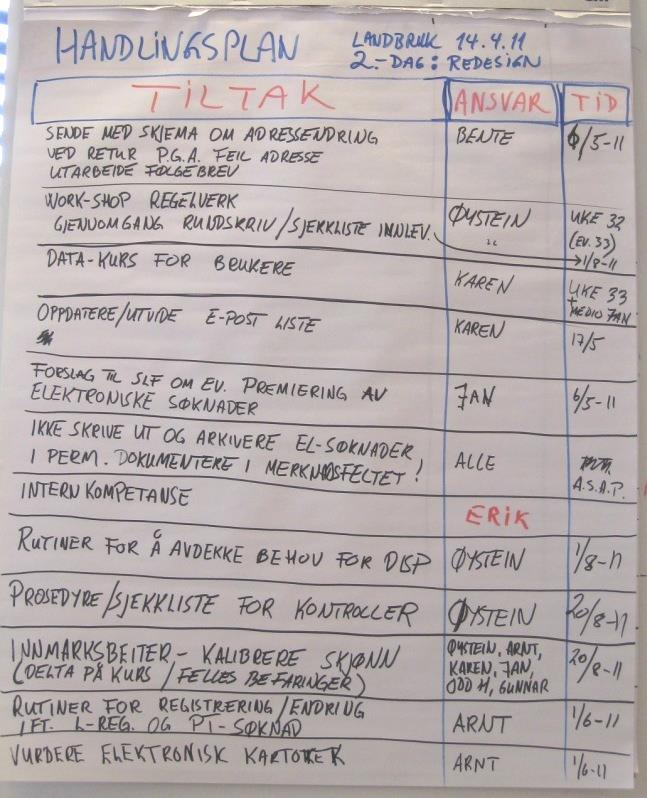 HANDLINGSPLAN
LANDBRUK 14.4.11
2.-DAG: REDESIGN
TILTAK ANSVAR TID
SENDE MED SKJEMA OM ADRESSENDRING BENTE 6/5-11
VED RETUR P.G.A. FEIL ADRESSE
UTARBEIDE FØLGEBREV
WORK-SHOP REGELVERK ØYSTEIN UKE 32
GJENNOMGANG RUNDSKRIV/SJEKKLISTE INNLEV. " (EV. 33)
1/8-11
DATA-KURS FOR BRUKERE KAREN UKE 33
+ MEDIO JAN
OPPDATERE/UTVIDE E-POST LISTE KAREN 17/5
FORSLAG TIL SLF OM EV. PREMIERING AV JAN 6/5-11
ELEKTRONISKE SØKNADER
IKKE SKRIVE UT OG ARKIVERE EL-SØKNADER ALLE
I PERM. DOKUMENTERE I MERKNADSFELTET! A.S.A.P.
INTERN KOMPETANSE ERIK
RUTINER FOR Å AVDEKKE BEHOV FOR DISP ØYSTEIN 1/8-11
PROSEDYRE/SJEKKLISTE FOR KONTROLLER ØYSTEIN 20/8-11
INNMARKSBEITER - KALIBRERE SKJØNN ØYSTEIN, ARNT, 20/8-11
(DELTA PÅ KURS/FELLES BEFARINGER) KAREN, JAN,
ODD H, GUNNAR
RUTINER FOR REGISTRERING/ENDRING ARNT 1/6-11
IFT. L-REG. OG PT-SØKNAD
VURDERE ELEKTRONISK KARTOTEK ARNT 1/6-11